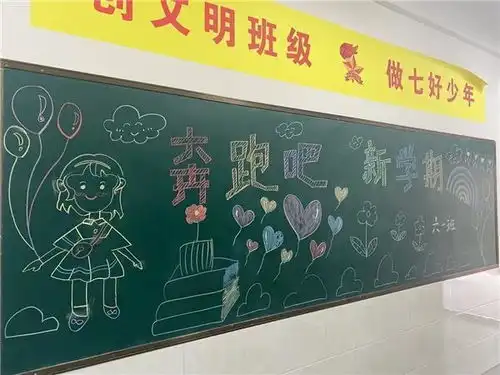 创文明班级 做七好少年
奔跑吧 新学期
六一班